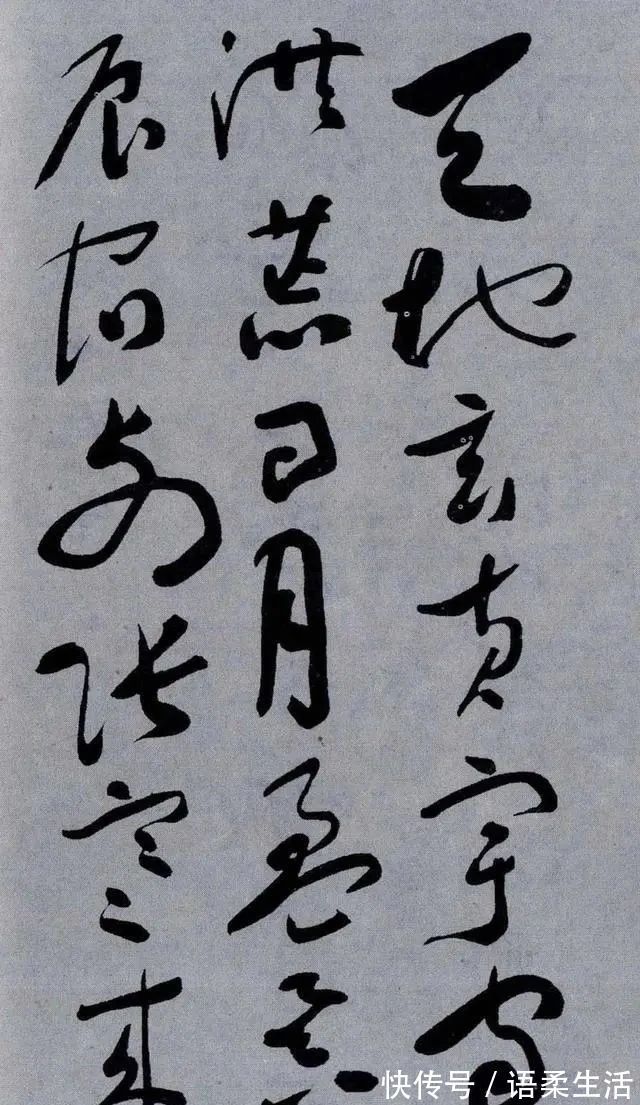 天地玄黄宇宙
洪荒日月盈昃
辰宿列张寒来
快传号／语柔生活